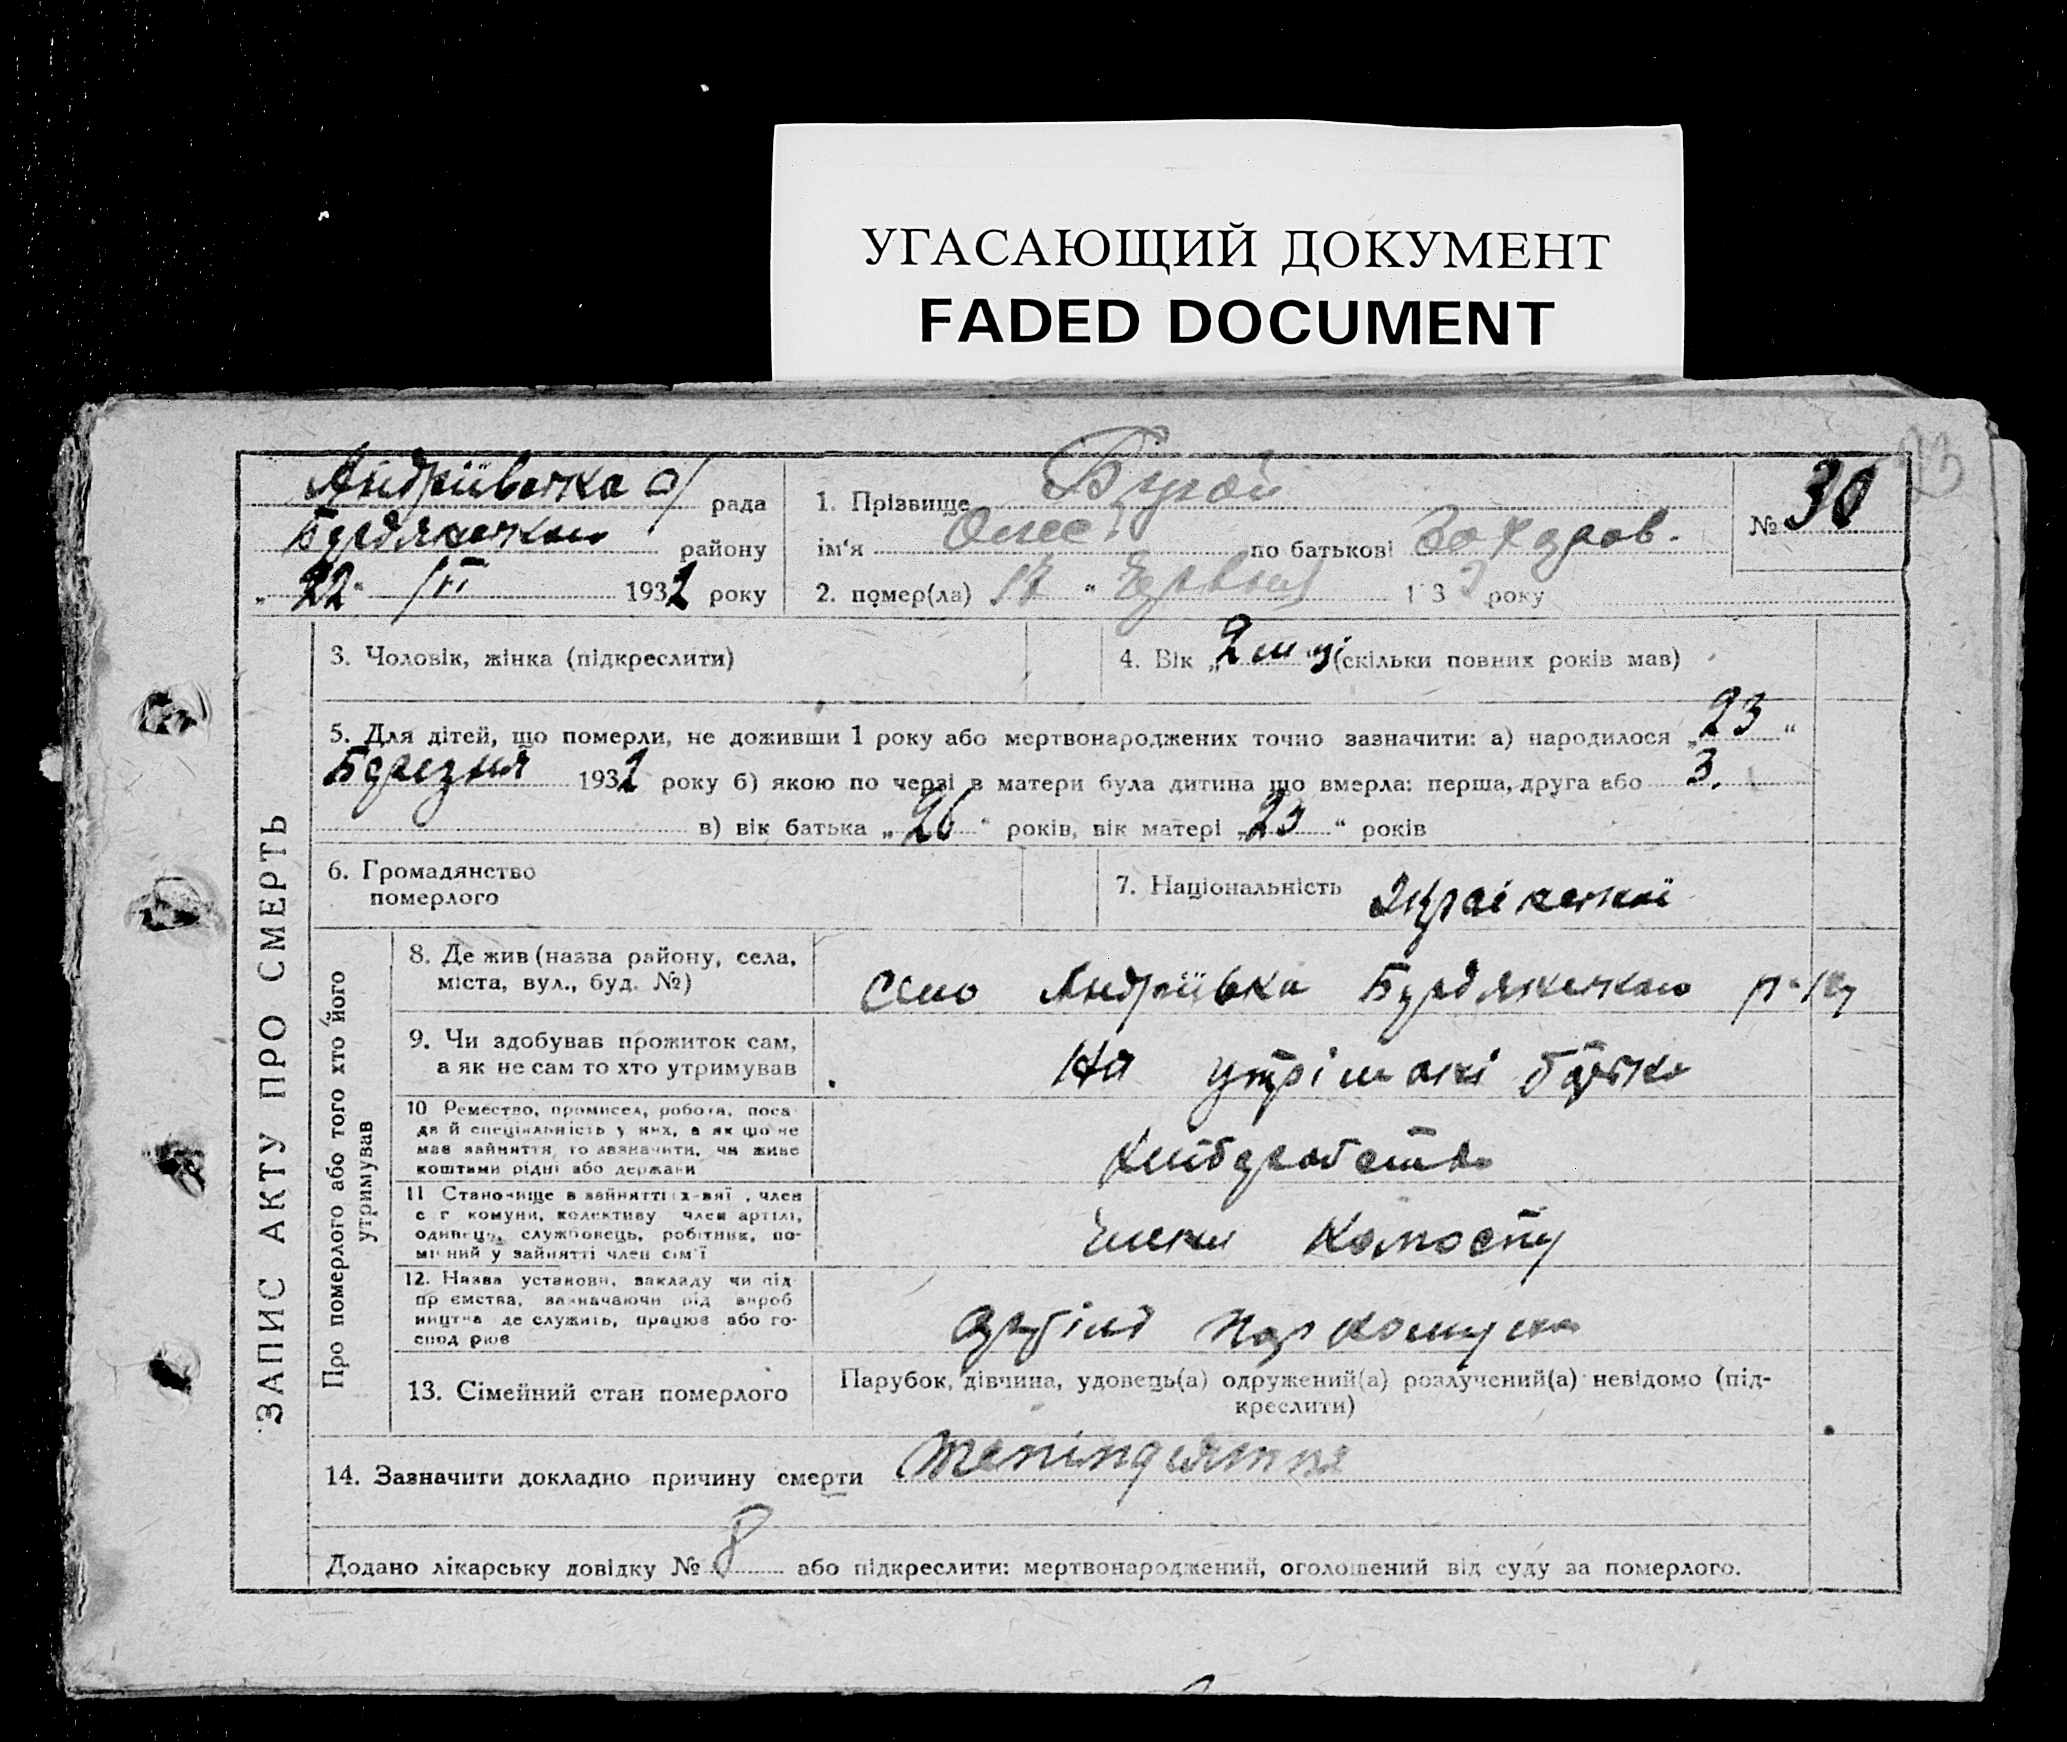 УГАСАЮЩИЙ ДОКУМЕНТ
FADED DOCUMENT
Андріївська с/ рада
Бердянського району
"22" VI 1932 року
1. Прізвище Бугай
ім'я Олес по батькові Захаров.
2. помер(ла) 17 " Червня 193 року
№ 30
93
ЗАПИС АКТУ ПРО СМЕРТЬ
3. Чоловік, жінка (підкреслити)
4. Вік „2 м-ці (скільки повних років мав)
5. Для дітей, що померли, не доживши 1 року або мертвонароджених точно зазначити: а) народилося „23"
Березня 1932 року б) якою по черзі в матери була дитина що вмерла: перша, друга або 3.
в) вік батька „26" років, вік матері „23" років
6. Громадянство
померлого
7. Національність
Про померлого або того хто його
утримував
8. Де жив (назва району, села,
міста, вул., буд. №)
Село Андріївка Бердянського р-ну
9. Чи здобував прожиток сам,
а як не сам то хто утримував
На утрімані батька
10 Ремество, промисел, робота, поса-
да й спеціяльність у них, а як що не
мав зайняття, то зазначити, чи живе
коштами рідні або держави
Хліборобство
11 Становище в зайнятті член
с г комуни, колективу член артілі,
одинець, службовець, робітник, по-
мічний у зайнятті член сім'ї
Член Колгоспу
12. Назва установи, закладу чи під
пр ємства, зазначаючи рід вироб
ництва де служить, працює або го-
спод рює
13. Сімейний стан померлого
Парубок, дівчина, удовець(а) одружений(а) розлучений(а) невідомо (під-
креслити)
14. Зазначити докладно причину смерти
Додано лікарську довідку № 8 або підкреслити: мертвонароджений, оголошений від суду за померлого.